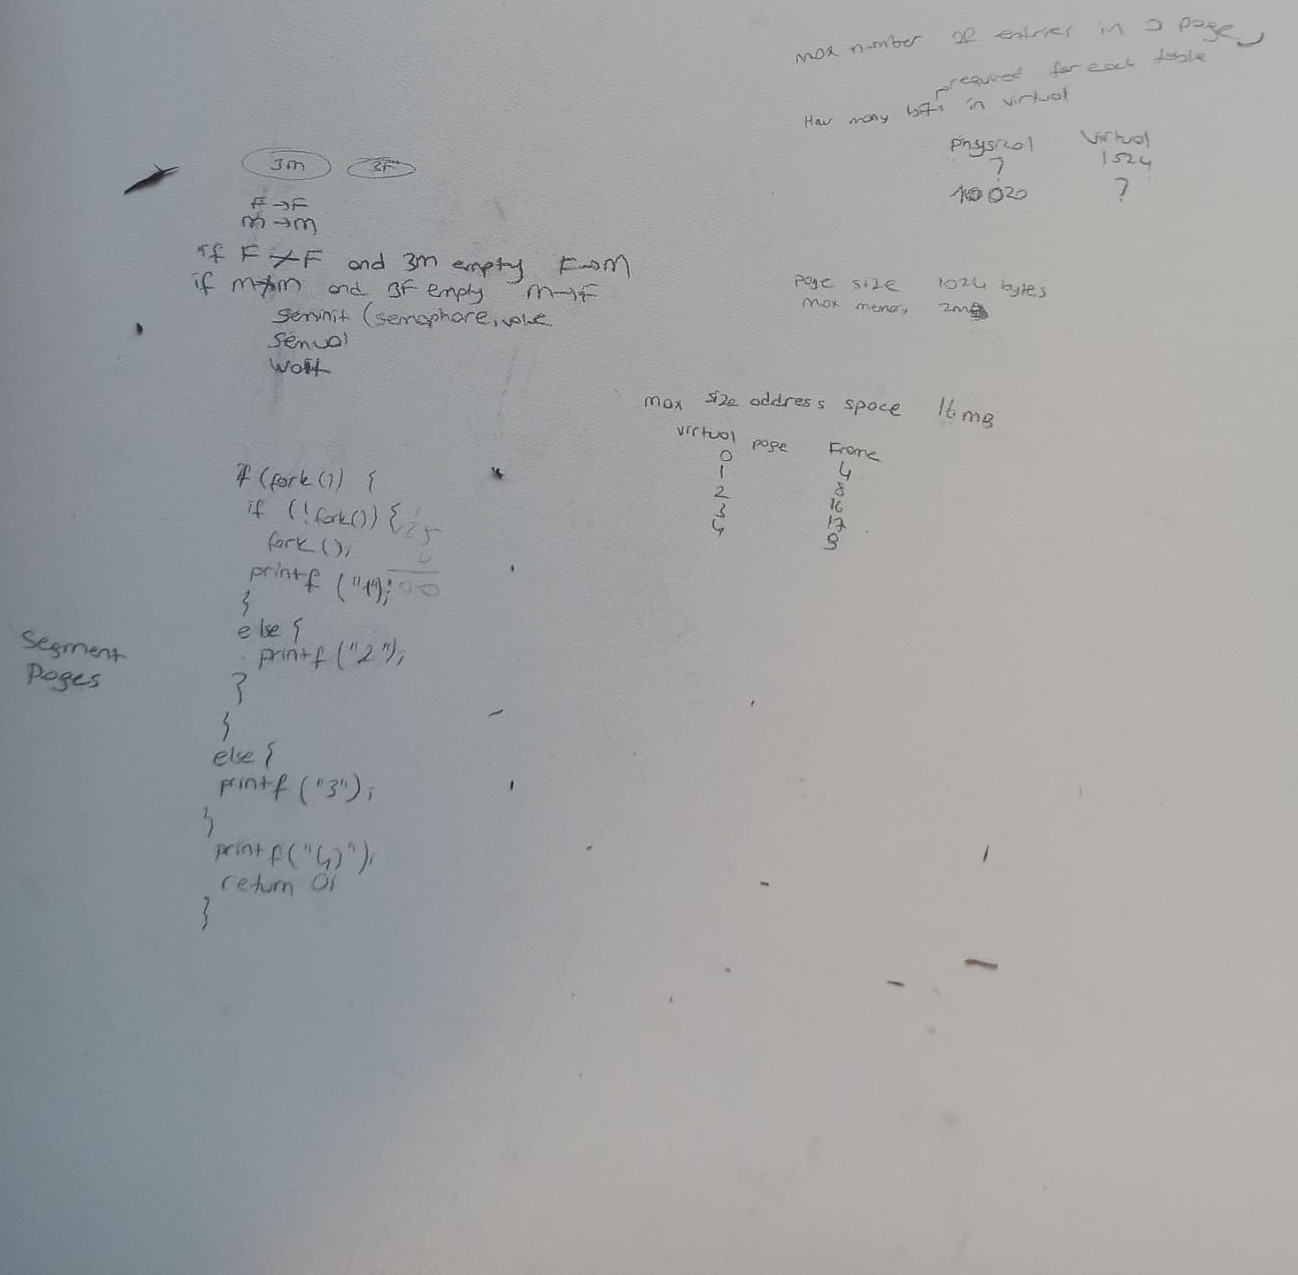 max number of entries in a page
required for each table
How many bits in virtual
Physical Virtual
? 1524
10020 ?
3M 3F
F→F
M→M
if F↛F and 3M empty F→M
if M↛M and 3F empty M→F
seminit (semaphore, value
semval
wait
Page size 1024 bytes
max memory 2mB
max size address space 16 mB
virtual page Frame
0 4
1 8
2 16
3 17
4 9
if (fork()) {
if (!fork()) {
fork();
printf ("1");
}
else {
printf ("2");
}
}
else {
printf ("3");
}
printf("4");
return 0;
}
Segment
Pages